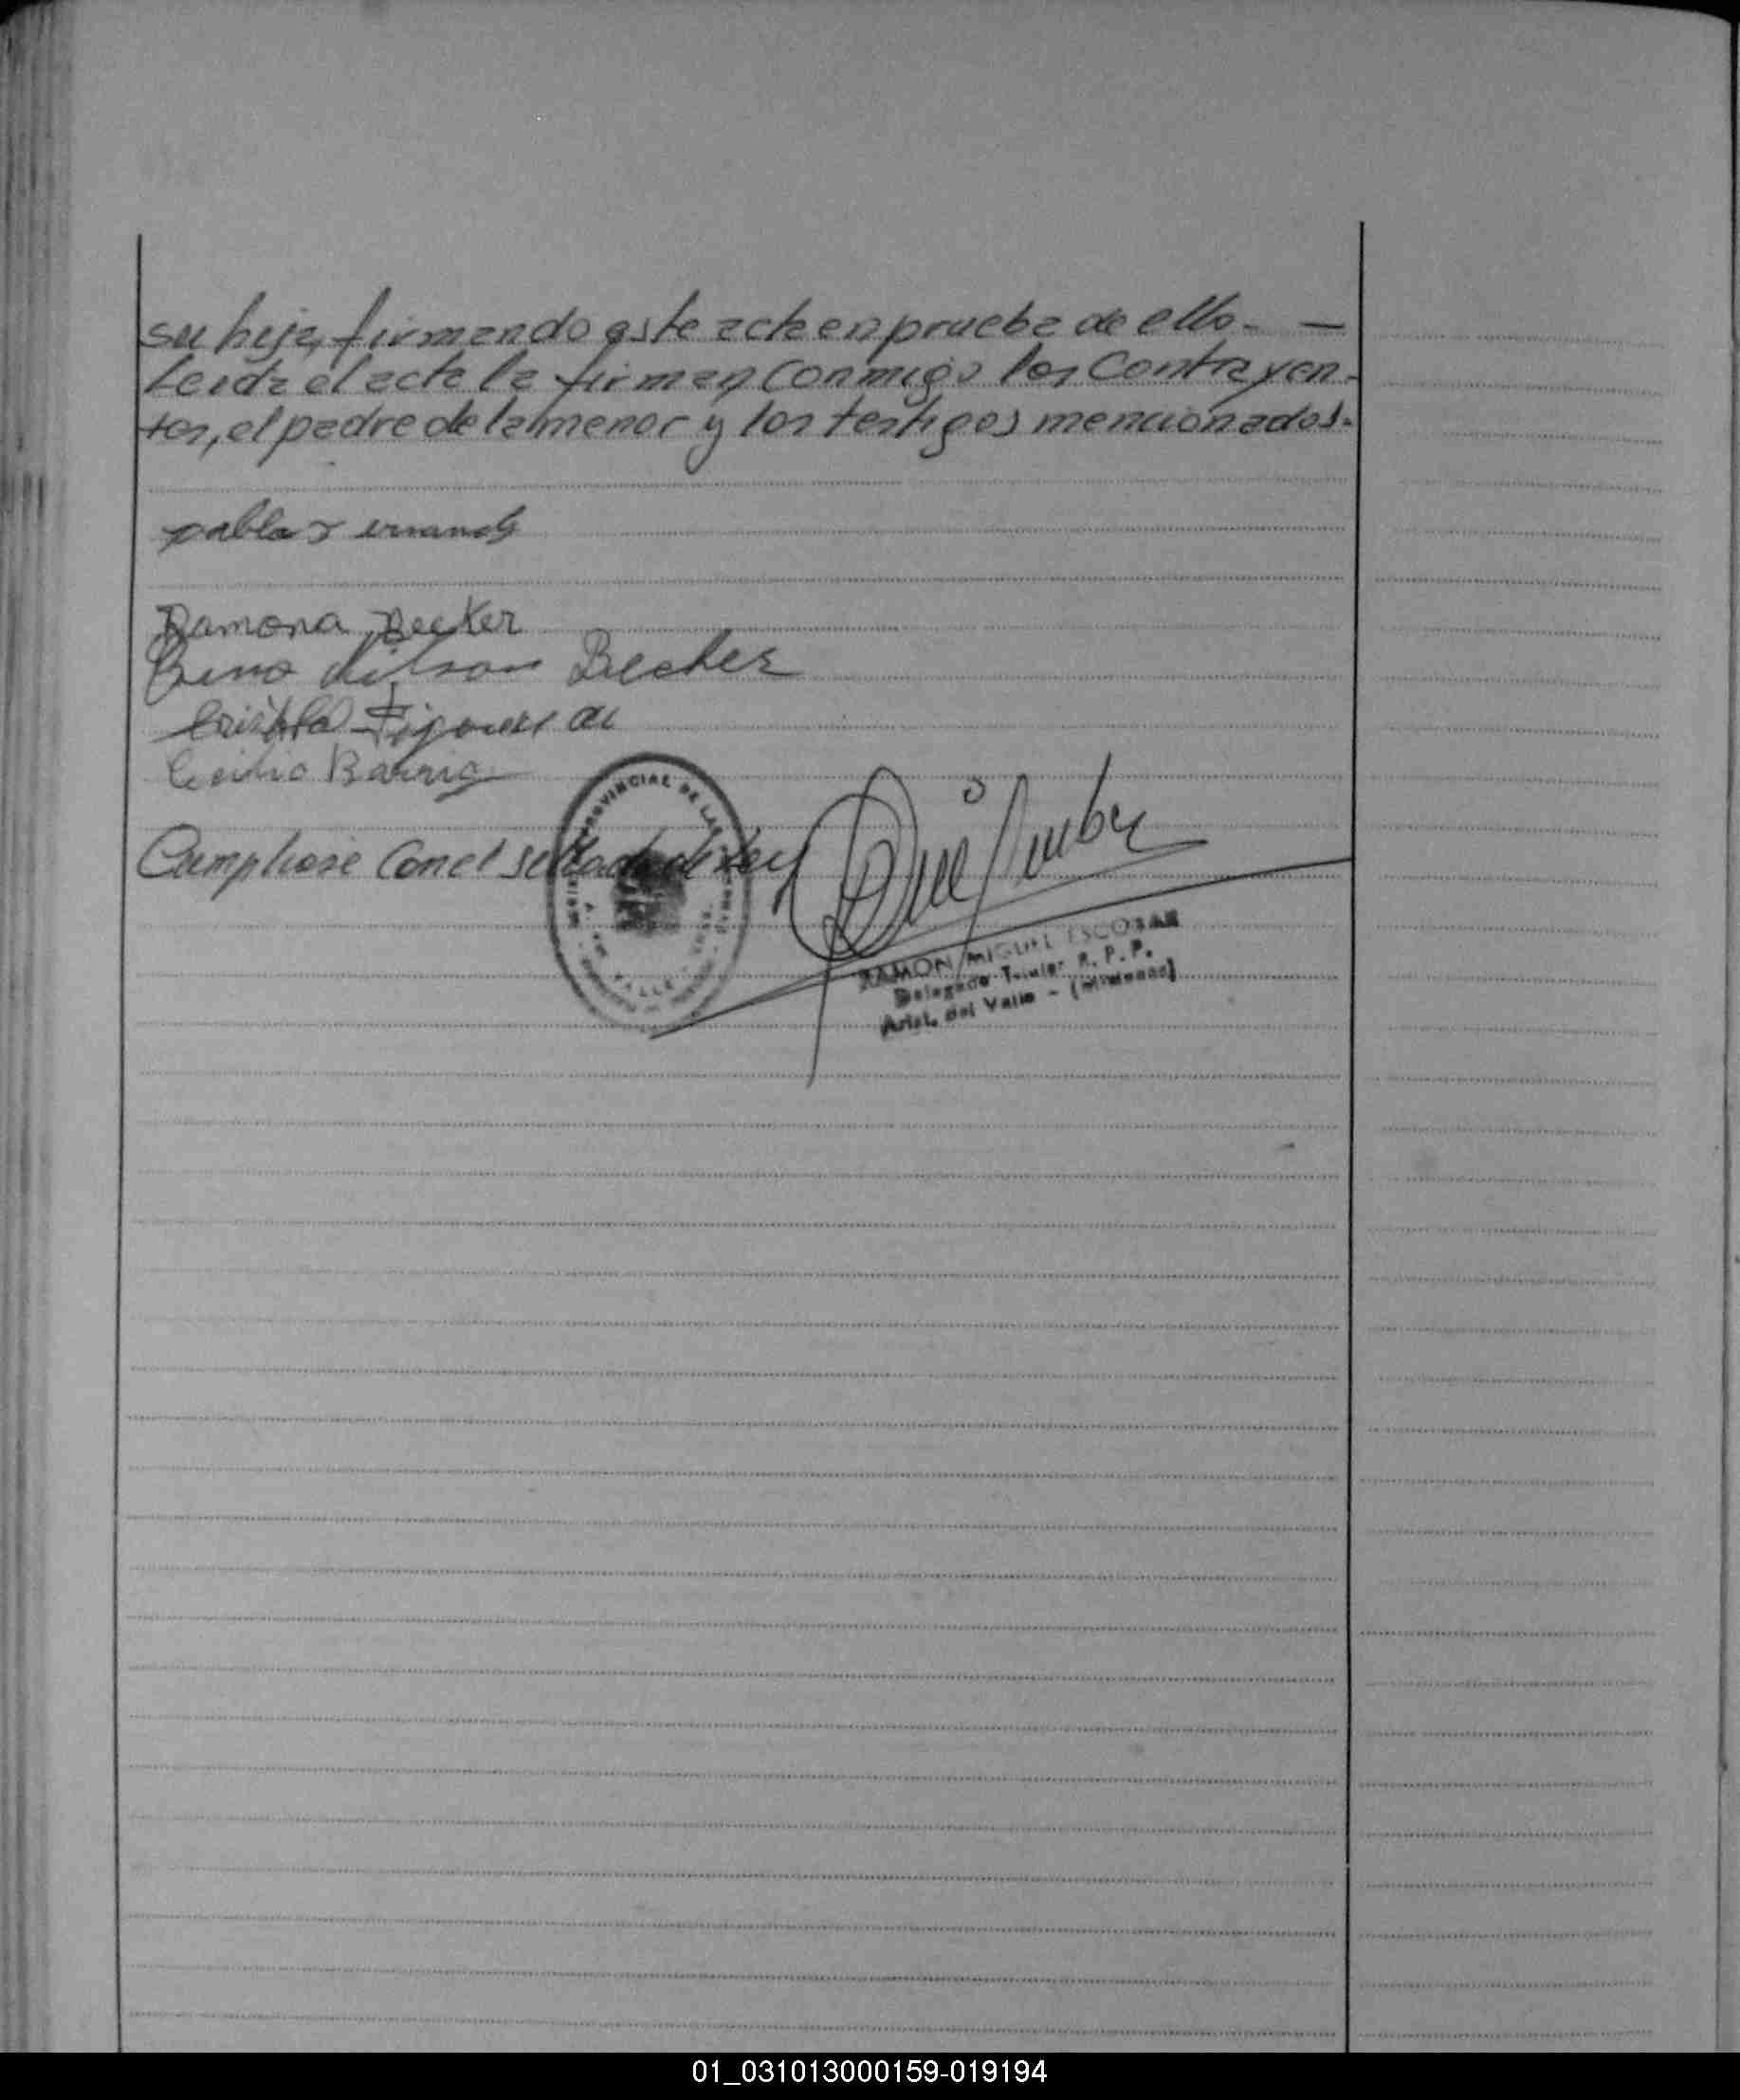 su hija, firmando este acta en prueba de ello. —
Leida el acta la firman, conmigo los Contrayen-
tes, el padre de la menor y los testigos mencionados.
Ramona Becker
Becker
Cumpliose con el sellado de ley
PROVINCIAL DE LAS
VALLE
RAMON MIGUEL ESCOBAR
Delegado Titular R. P. P.
Arist. del Valle - (Misiones)
01_031013000159-019194